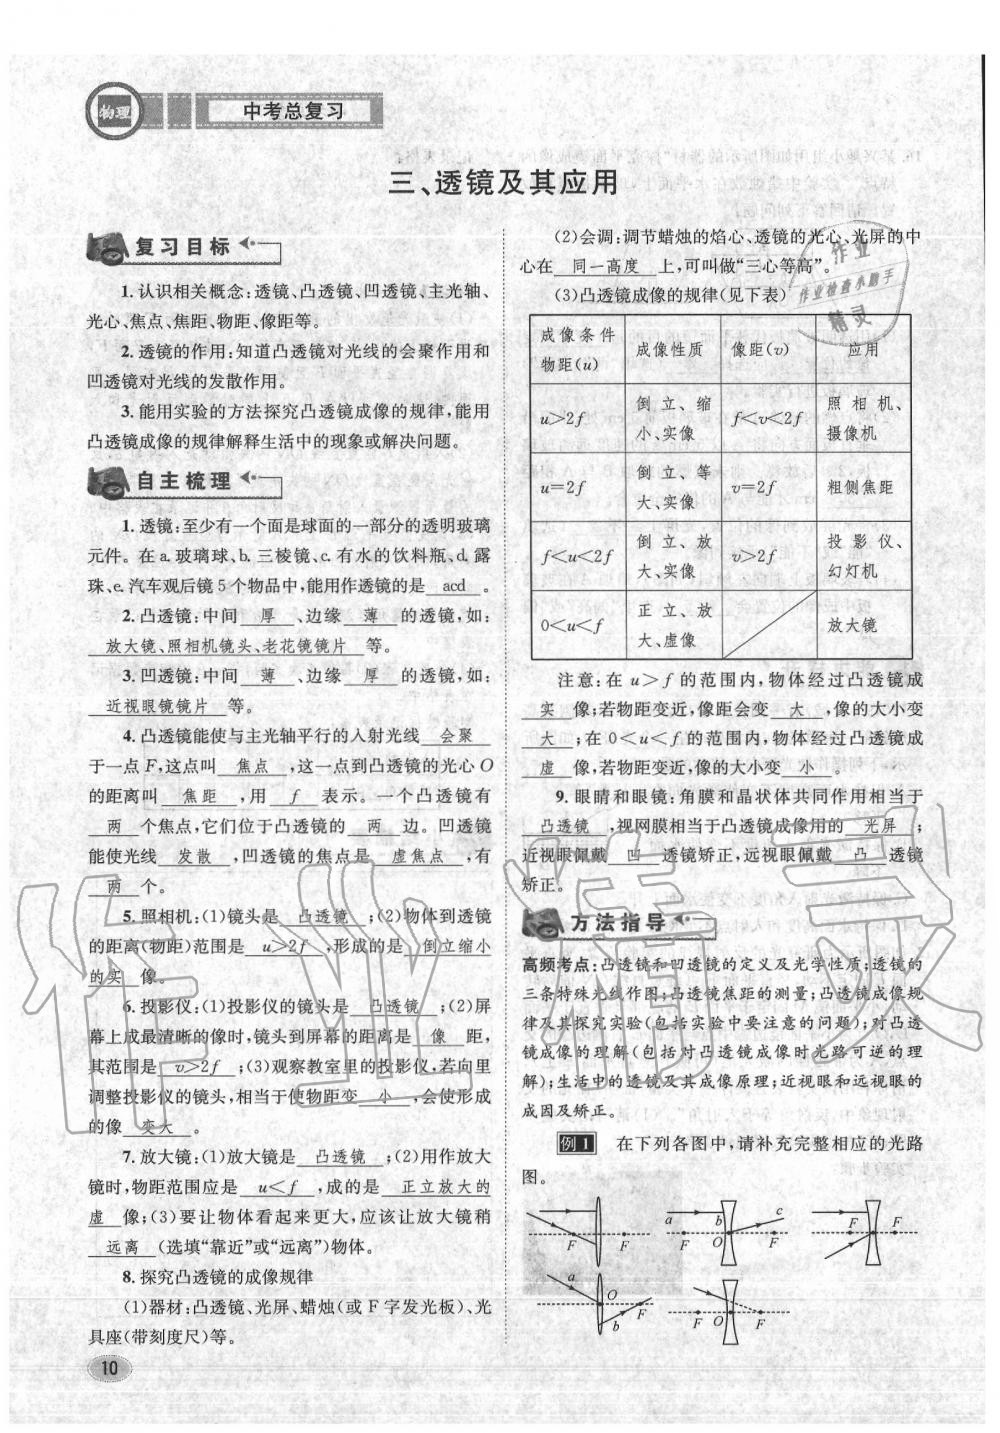 物理
中考总复习
三、透镜及其应用
复习目标
1. 认识相关概念:透镜、凸透镜、凹透镜、主光轴、
光心、焦点、焦距、物距、像距等。
2. 透镜的作用:知道凸透镜对光线的会聚作用和
凹透镜对光线的发散作用。
3. 能用实验的方法探究凸透镜成像的规律,能用
凸透镜成像的规律解释生活中的现象或解决问题。
自主梳理
1. 透镜:至少有一个面是球面的一部分的透明玻璃
元件。在a.玻璃球、b.三棱镜、c.有水的饮料瓶、d.露
珠、e.汽车观后镜5个物品中,能用作透镜的是 acd 。
2. 凸透镜:中间 厚 、边缘 薄 的透镜,如:
放大镜、照相机镜头、老花镜镜片 等。
3. 凹透镜:中间 薄 、边缘 厚 的透镜,如:
近视眼镜镜片 等。
4. 凸透镜能使与主光轴平行的入射光线 会聚
于一点F,这点叫 焦点 ,这一点到凸透镜的光心O
的距离叫 焦距 ,用 f 表示。一个凸透镜有
两 个焦点,它们位于凸透镜的 两 边。凹透镜
能使光线 发散 ,凹透镜的焦点是 虚焦点 ,有
两 个。
5. 照相机:(1)镜头是 凸透镜 ;(2)物体到透镜
的距离(物距)范围是 u>2f ,形成的是 倒立缩小
的实 像。
6. 投影仪:(1)投影仪的镜头是 凸透镜 ;(2)屏
幕上成最清晰的像时,镜头到屏幕的距离是 像 距,
其范围是 v>2f ;(3)观察教室里的投影仪,若向里
调整投影仪的镜头,相当于使物距变 小 ,会使形成
的像 变大 。
7. 放大镜:(1)放大镜是 凸透镜 ;(2)用作放大
镜时,物距范围应是 u<f ,成的是 正立放大的
虚 像;(3)要让物体看起来更大,应该让放大镜稍
远离 (选填“靠近”或“远离”)物体。
8. 探究凸透镜的成像规律
(1)器材:凸透镜、光屏、蜡烛(或F字发光板)、光
具座(带刻度尺)等。
10
(2)会调:调节蜡烛的焰心、透镜的光心、光屏的中
心在 同一高度 上,可叫做“三心等高”。
(3)凸透镜成像的规律(见下表)
成像条件 物距(u) 成像性质 像距(v) 应用
u>2f 倒立、缩小、实像 f<v<2f 照相机、摄像机
u=2f 倒立、等大、实像 v=2f 粗侧焦距
f<u<2f 倒立、放大、实像 v>2f 投影仪、幻灯机
0<u<f 正立、放大、虚像 放大镜
注意:在u>f的范围内,物体经过凸透镜成
实 像;若物距变近,像距会变 大 ,像的大小变
大 ;在0<u<f的范围内,物体经过凸透镜成
虚 像,若物距变近,像的大小变 小 。
9. 眼睛和眼镜:角膜和晶状体共同作用相当于
凸透镜 ,视网膜相当于凸透镜成像用的 光屏 ;
近视眼佩戴 凹 透镜矫正,远视眼佩戴 凸 透镜
矫正。
方法指导
高频考点:凸透镜和凹透镜的定义及光学性质;透镜的
三条特殊光线作图;凸透镜焦距的测量;凸透镜成像规
律及其探究实验(包括实验中要注意的问题);对凸透
镜成像的理解(包括对凸透镜成像时光路可逆的理
解);生活中的透镜及其成像原理;近视眼和远视眼的
成因及矫正。
例1 在下列各图中,请补充完整相应的光路
图。
F F
a b c F O F
F F
a O F b
F O F
作业
作业检查小助手
精灵
作业精灵